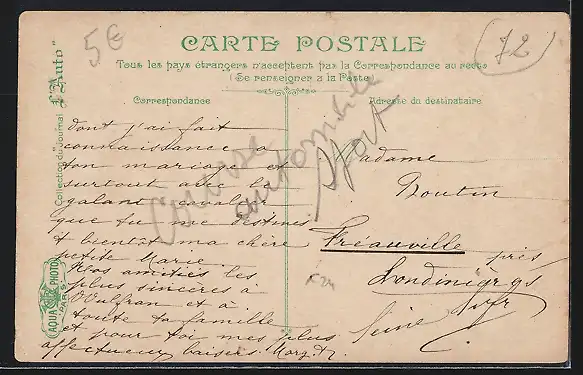 5€
72
CARTE POSTALE
Tous les pays étrangers n'acceptent pas la Correspondance au recto
(Se renseigner à la Poste)
Correspondance
Adresse du destinataire
Collection du Journal "L'Auto"
AQUA PHOTO
PARIS
Course
automobile
Sport
dont j'ai fait
connaissance a
ton mariage et
surtout avec le
galant cavalier
que tu me destines
à bientôt ma chère
petite Marie.
Nos amitiés les
plus sincères à
et à
toute ta famille
et pour toi mes plus
affectueux baisers.
Madame
Boutin
Fréauville
près
Londinières
Seine Infr